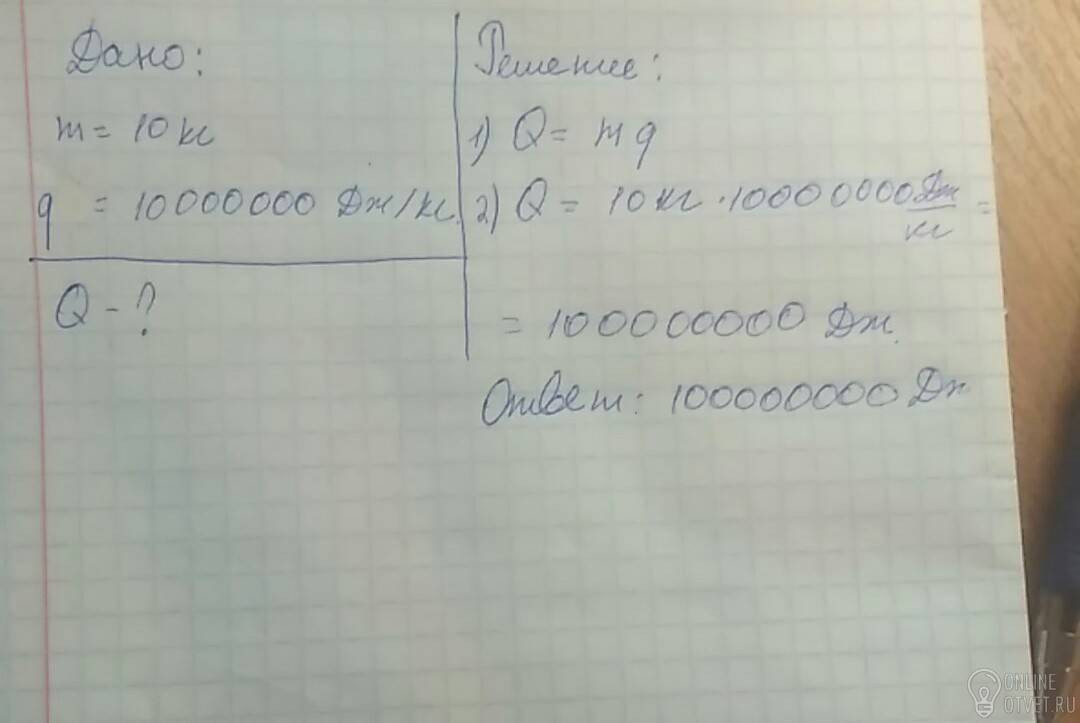 Дано:
m = 10 кг
q = 10000000 Дж/кг
Q - ?
Решение:
1) Q = mq
2) Q = 10 кг · 10000000 Дж/кг =
= 100000000 Дж.
Ответ: 100000000 Дж
ONLINE
OTVET.RU